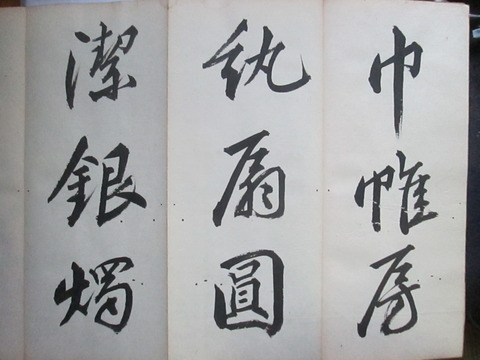 巾帷房
紈扇圓
潔銀燭